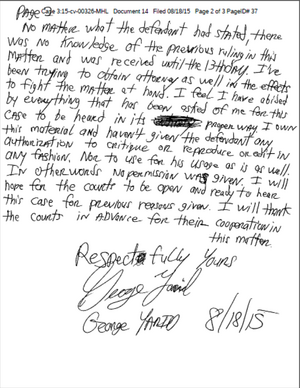 Case 3:15-cv-00326-MHL Document 14 Filed 08/18/15 Page 2 of 3 PageID# 37
Page
No matter what the defendant had stated, there
was no knowledge of the previous ruling in this
matter and was received until the 13th day. I've
been trying to obtain attorney as well in the effects
to fight the matter at hand. I feel I have abided
by everything that has been asked of me for this
case to be heard in its proper way. I own
this material and haven't given the defendant any
authorization to critique or reproduce or edit in
any fashion. Nor to use for his usage as is as well.
In other words no permission was given. I will
hope for the courts to be open and ready to hear
this case for previous reasons given. I will thank
the courts in advance for their cooperation in
this matter.
Respectfully Yours
George
George
8/18/15